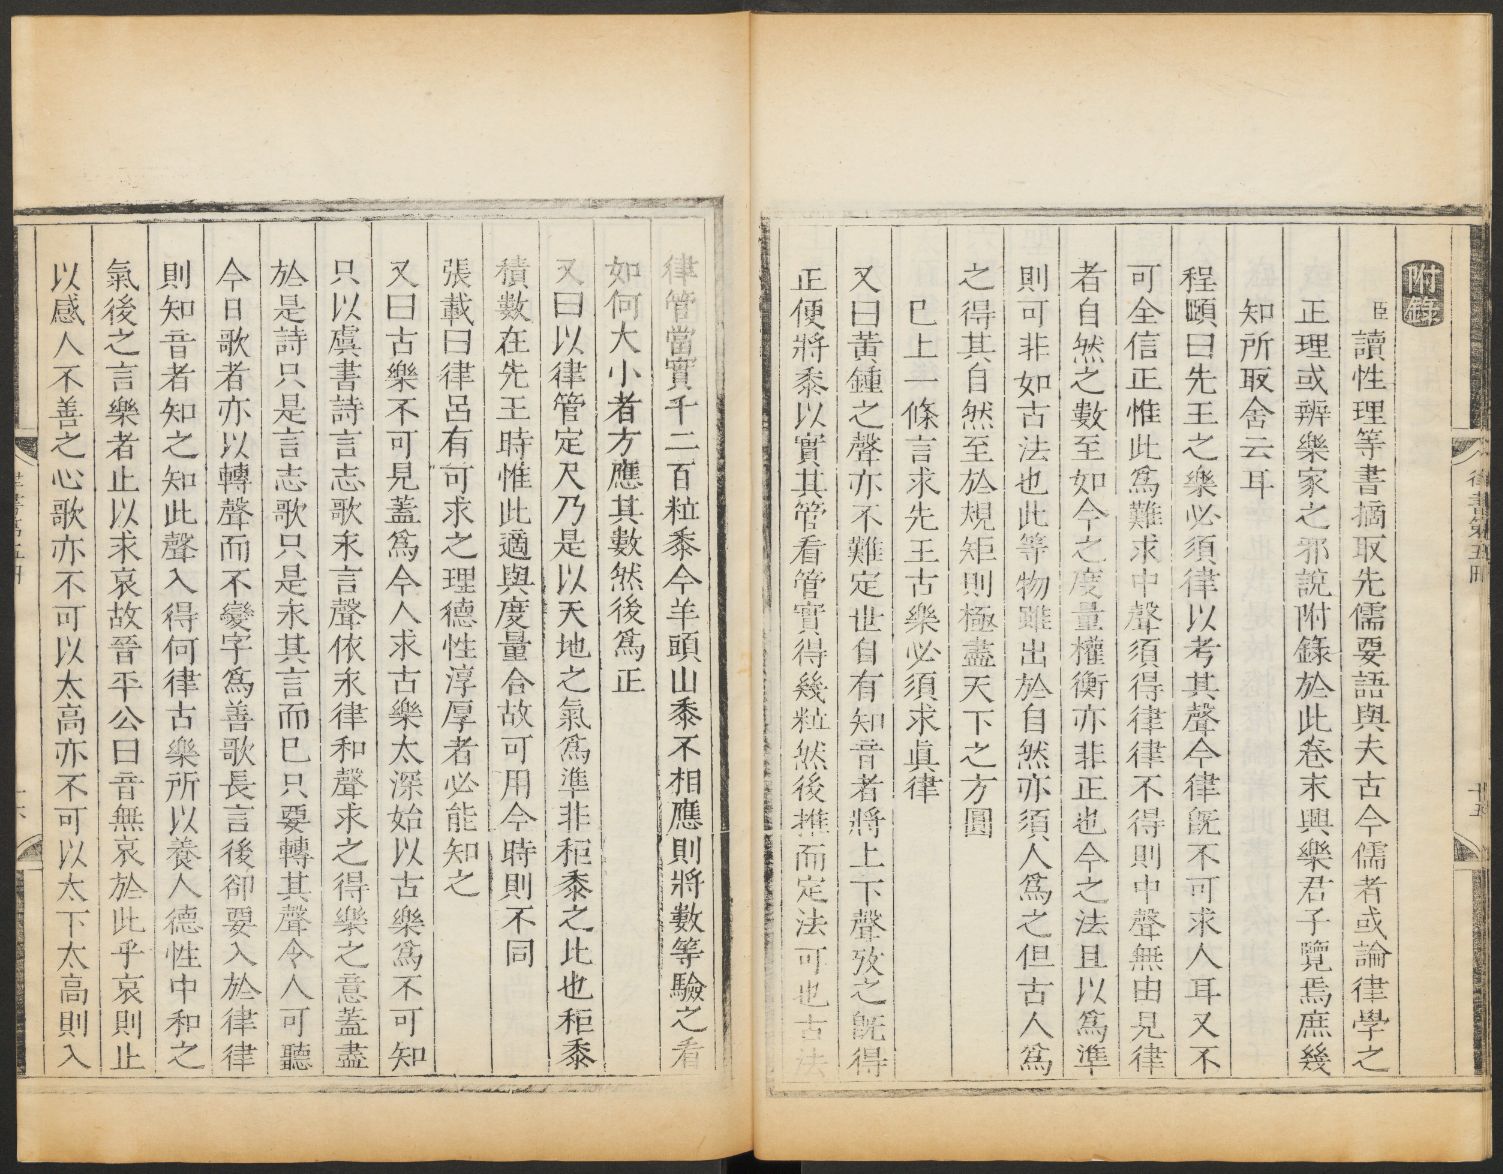 附錄
臣讀性理等書摘取先儒要語與夫古今儒者或論律學之
正理或辨樂家之邪說附錄於此卷末興樂君子覽焉庶幾
知所取舍云耳
程頤曰先王之樂必須律以考其聲今律既不可求人耳又不
可全信正惟此爲難求中聲須得律律不得則中聲無由見律
者自然之數至如今之度量權衡亦非正也今之法且以爲準
則可非如古法也此等物雖出於自然亦須人爲之但古人爲
之得其自然至於規矩則極盡天下之方圓
已上一條言求先王古樂必須求眞律
又曰黃鍾之聲亦不難定世自有知音者將上下聲攷之既得
正便將黍以實其管看管實得幾粒然後推而定法可也古法
律管當實千二百粒黍今羊頭山黍不相應則將數等驗之看
如何大小者方應其數然後爲正
又曰以律管定尺乃是以天地之氣爲準非秬黍之比也秬黍
積數在先王時惟此適與度量合故可用今時則不同
張載曰律呂有可求之理德性淳厚者必能知之
又曰古樂不可見蓋爲今人求古樂太深始以古樂爲不可知
只以虞書詩言志歌永言聲依永律和聲求之得樂之意蓋盡
於是詩只是言志歌只是永其言而已只要轉其聲令人可聽
今日歌者亦以轉聲而不變字爲善歌長言後卻要入於律律
則知音者知之知此聲入得何律古樂所以養人德性中和之
氣後之言樂者止以求哀故晉平公曰音無哀於此乎哀則止
以感人不善之心歌亦不可以太高亦不可以太下太高則入
律書第五冊
十五